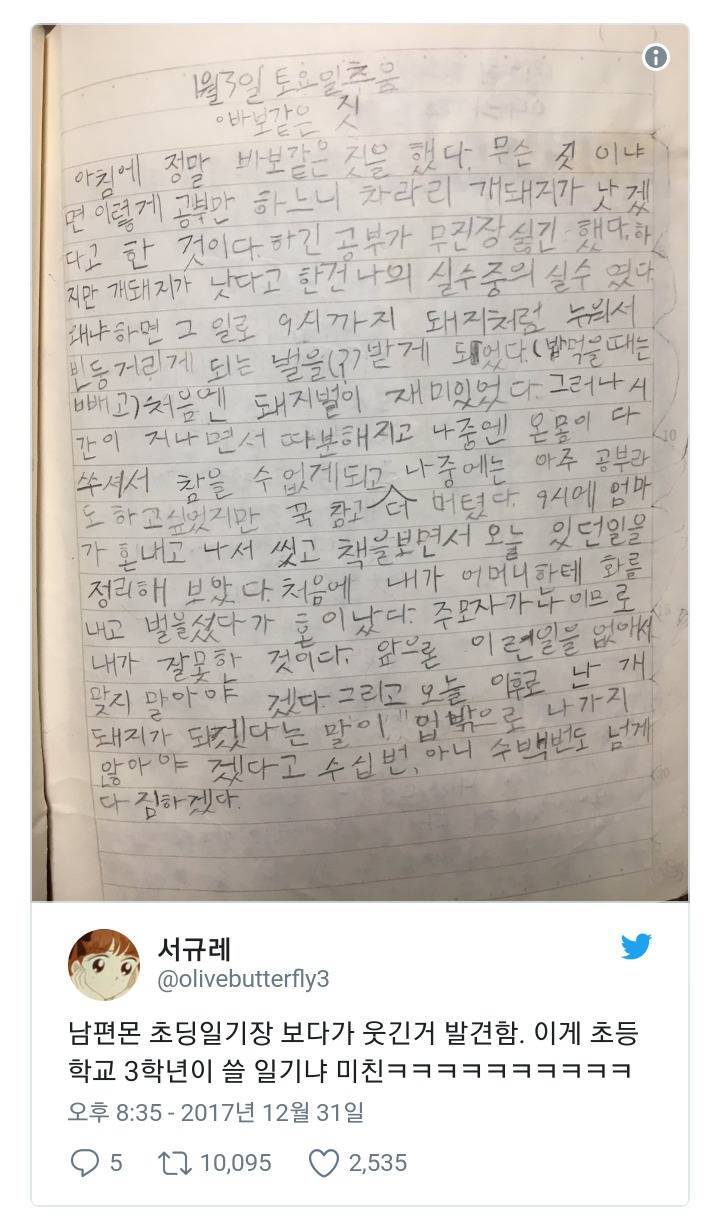 1월3일 토요일 추움
바보같은 짓
아침에 정말 바보같은 짓을 했다. 무슨 짓 이냐
면 이렇게 공부만 하느니 차라리 개돼지가 낫겠
다고 한 것이다. 하긴 공부가 무진장 싫긴 했다. 하
지만 개돼지가 낫다고 한건 나의 실수중의 실수 였다
왜냐하면 그 일로 9시까지 돼지처럼 누워서
빈둥거리게 되는 벌을(?)받게 되었다.(밥먹을때는
빼고)처음엔 돼지벌이 재미있었다. 그러나 시
간이 지나면서 따분해지고 나중엔 온몸이 다
쑤셔서 참을 수 없게되고 나중에는 아주 공부라
도 하고싶었지만 꾹 참고 더 버텼다. 9시에 엄마
가 혼내고 나서 씻고 책을보면서 오늘 있던일을
정리해 보았다. 처음에 내가 어머니한테 화를
내고 벌을섰다가 혼이났다. 주모자가 나 이므로
내가 잘못한 것이다. 앞으론 이런일을 없애서
맞지 말아야 겠다. 그리고 오늘 이후로 난 개
돼지가 되겠다는 말이 "입밖으로 나가지
않아야 겠다고 수십번, 아니 수백번도 넘게
다짐하겠다.
10
서규레
@olivebutterfly3
남편몬 초딩일기장 보다가 웃긴거 발견함. 이게 초등
학교 3학년이 쓸 일기냐 미친ㅋㅋㅋㅋㅋㅋㅋㅋㅋㅋ
오후 8:35 - 2017년 12월 31일
5 10,095 2,535